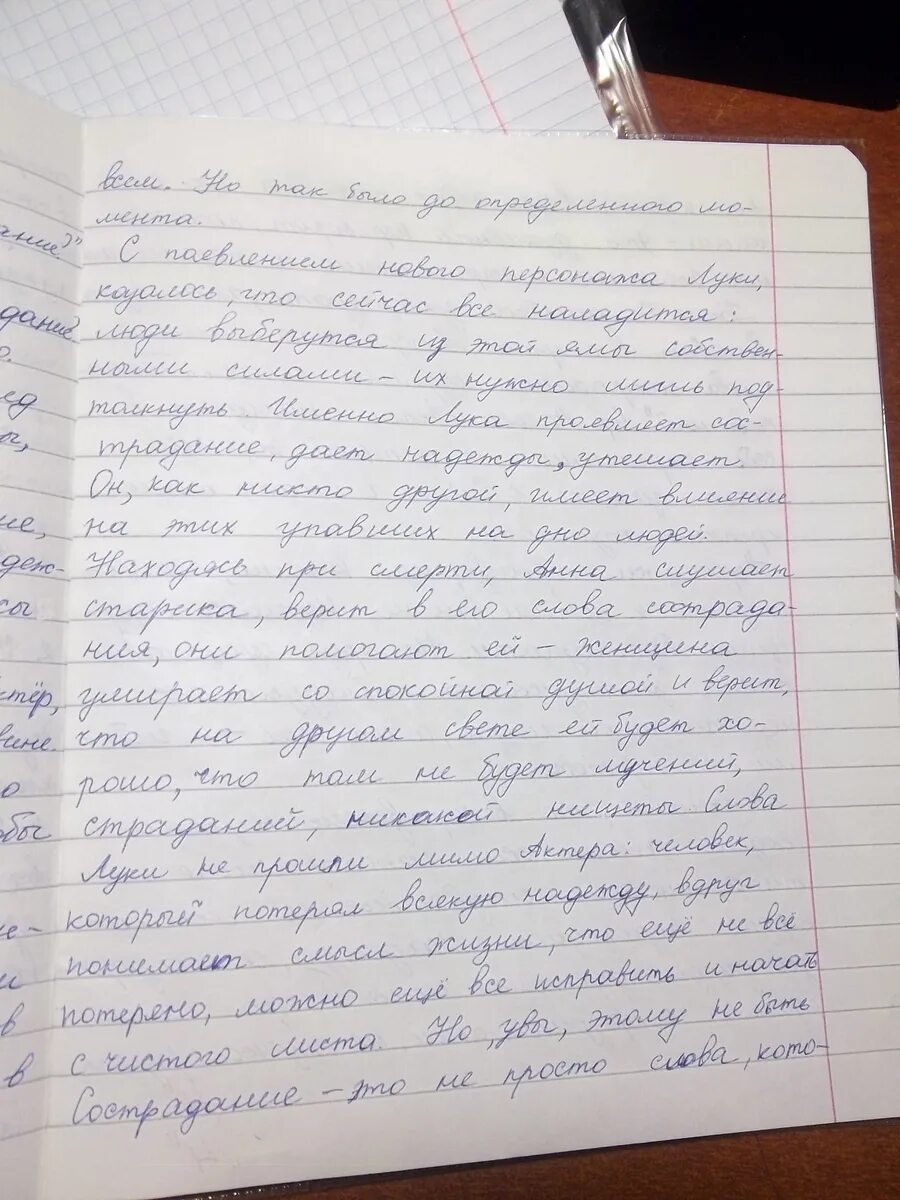 всем. Но так было до определенного мо-
мента.
С паевлением нового персонажа Луки,
казалось, что сейчас все наладится:
люди выберутся из этой ямы собствен-
ными силами – их нужно лишь под-
толкнуть Именно Лука проявляет сос-
традание, дает надежды, утешает
Он, как никто другой, имеет влияние
на этих упавших на дно людей.
Находясь при смерти, Анна слушает
старика, верит в его слова сострада-
ния, они помогают ей – женщина
умирает со спокойной душой и верит,
что на другом свете ей будет хо-
рошо, что там не будет мучений,
страданий, никакой нищеты Слова
Луки не прошли мимо Актера: человек,
который потерял всякую надежду, вдруг
понимает смысл жизни, что ещё не всё
потеряно, можно ещё все исправить и начать
с чистого листа. Но, увы, этому не быть
Сострадание – это не просто слова, кото-
ание?"
дание
о.
ед
ы,
ие,
деж-
сы
ктёр,
вине.
о
обы
е-
и
в
в